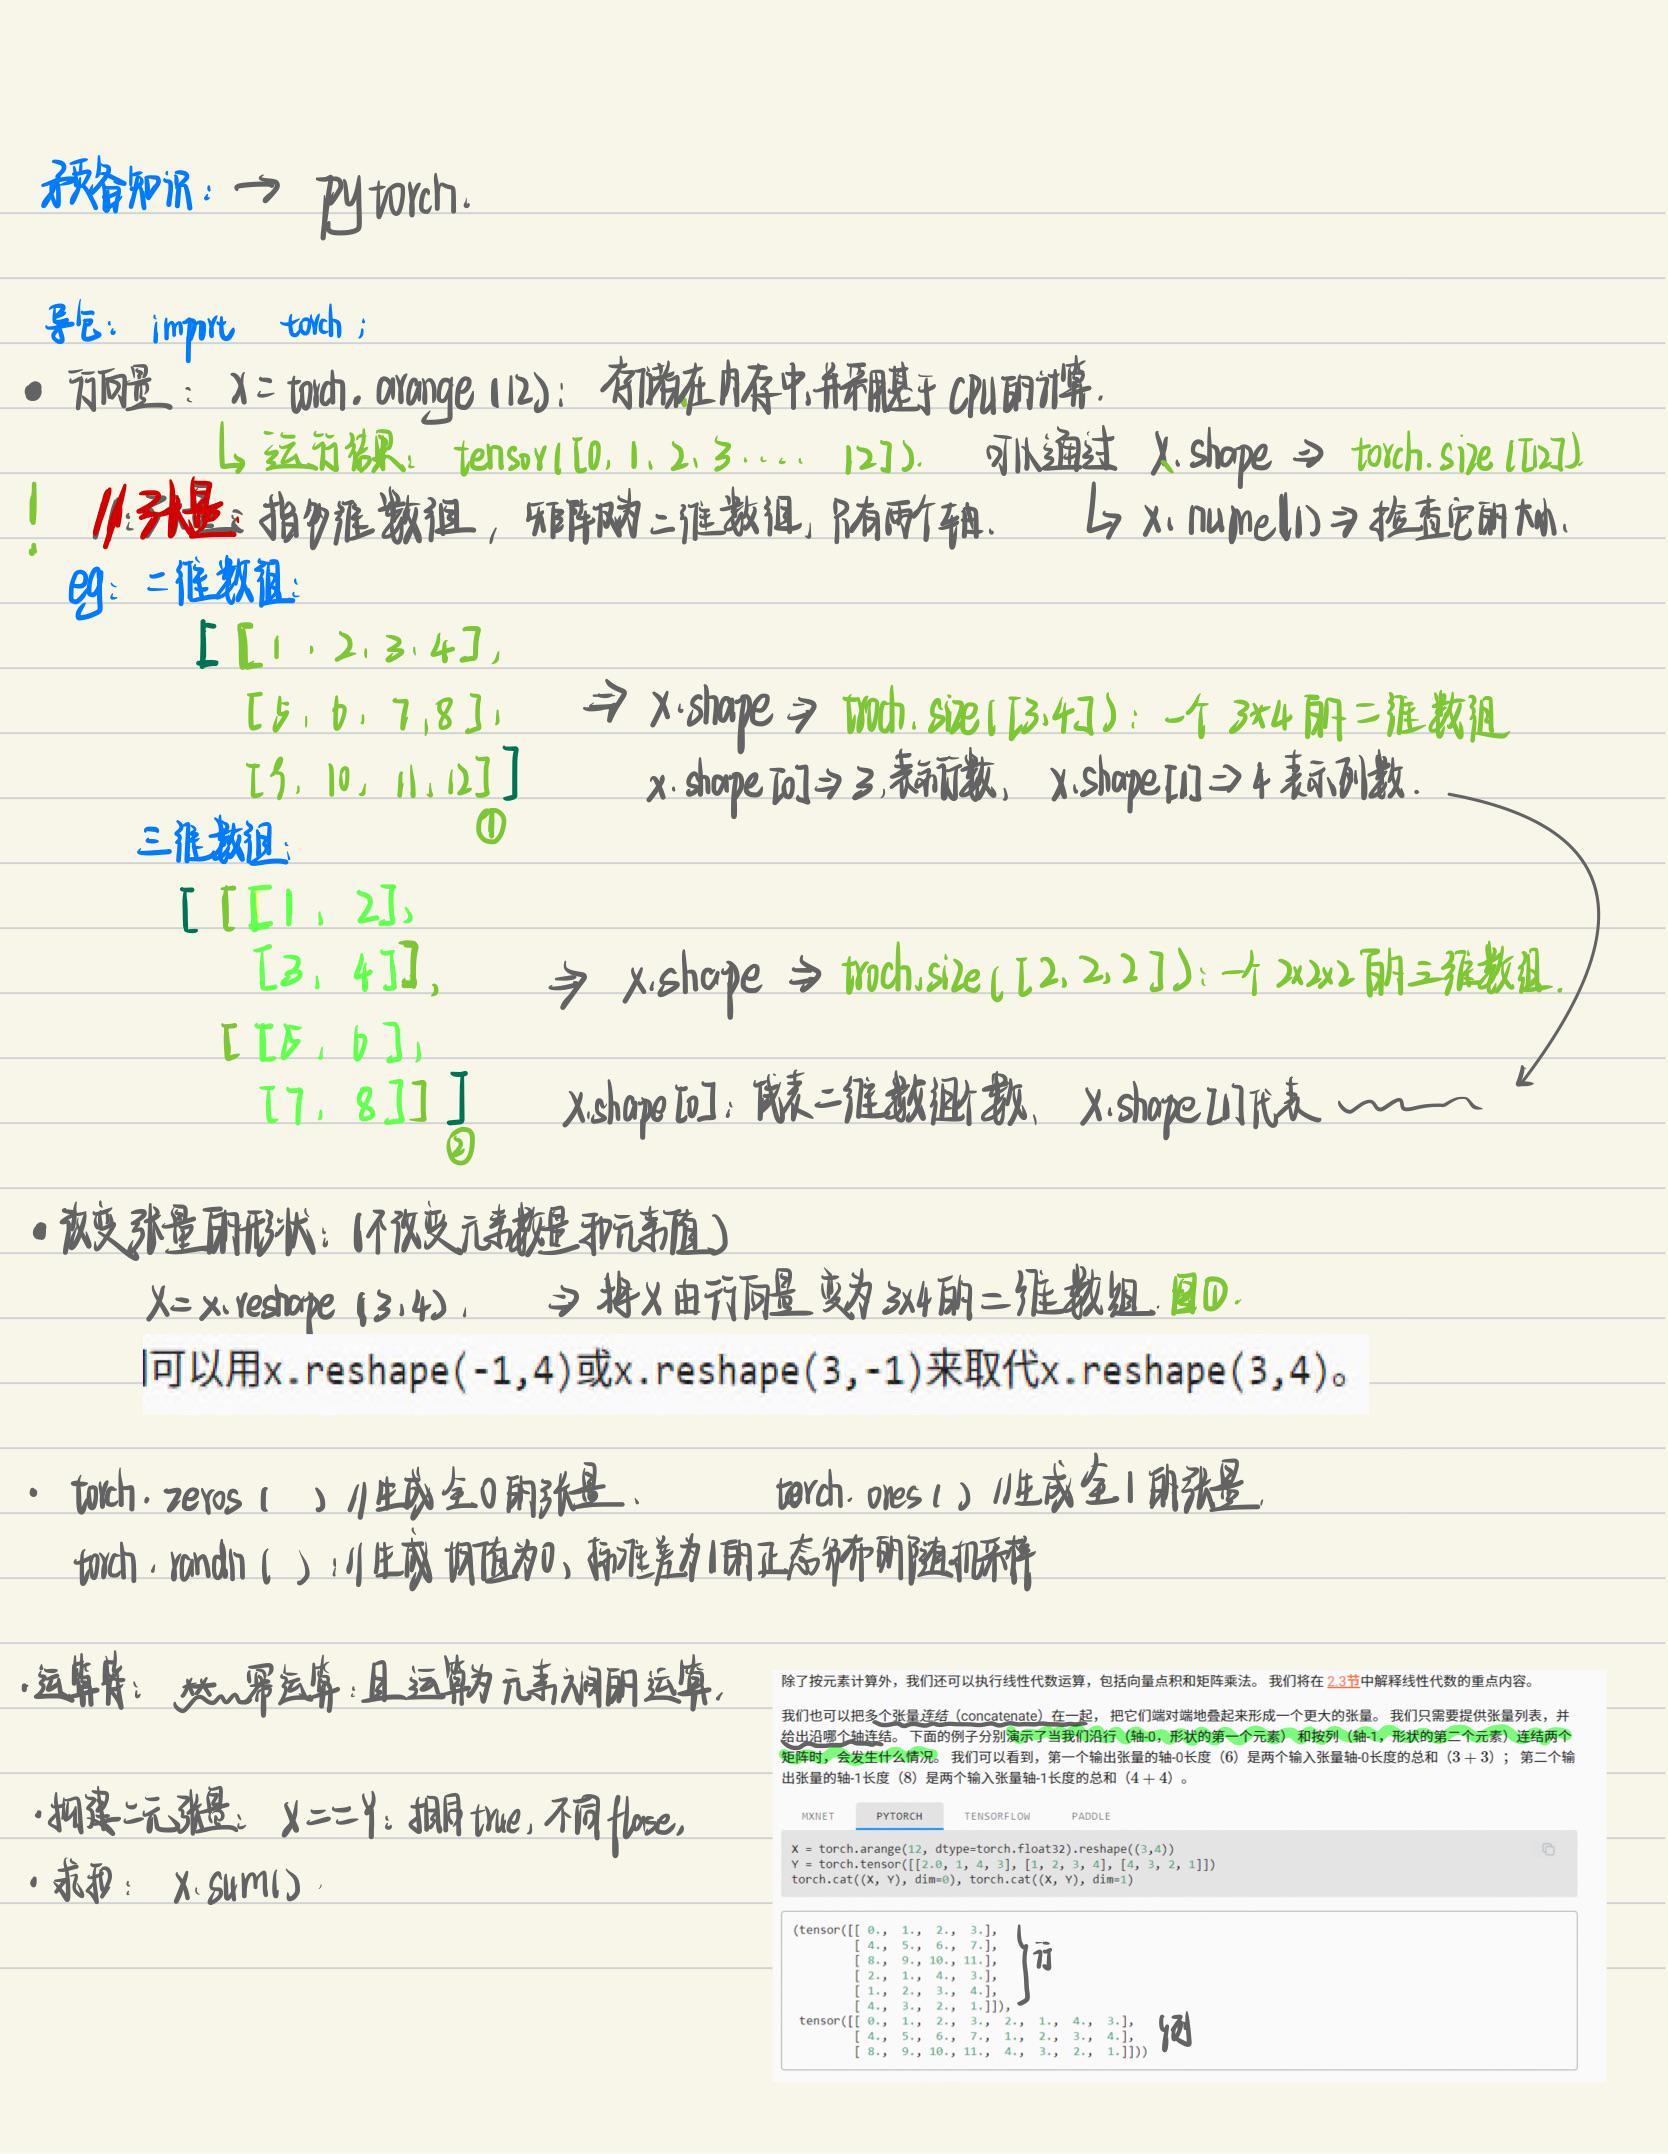 预备知识：→ pytorch.
导包： import torch；
• 行向量： x = torch.arange(12)： 存储在内存中,并采用基于CPU的计算.
↳ 运行结果： tensor([0, 1, 2, 3 .... 12]). 可以通过 X.shape ⇒ torch.size([12])
! //张量： 指多维数组，矩阵网为二维数组，只有两个轴. ↳ x.numel() ⇒ 检查它的大小.
eg： 二维数组：
[ [1, 2, 3, 4],
[5, 6, 7, 8], ⇒ x.shape ⇒ troch.size([3,4])：一个 3*4 的二维数组
[9, 10, 11, 12] ] x.shape[0] ⇒ 3,表示行数、 x.shape[1] ⇒ 4 表示列数.
①
三维数组：
[ [ [1, 2],
[3, 4] ], ⇒ x.shape ⇒ troch.size([2, 2, 2])：一个 2x2x2 的三维数组.
[ [5, 6],
[7, 8] ] ] x.shape[0]：代表二维数组个数、 x.shape[1]代表
②
• 改变张量的形状：(不改变元素数量和元素值)
X = x.reshape(3,4). ⇒ 将X由行向量变为3x4的二维数组.图①.
可以用x.reshape(-1,4)或x.reshape(3,-1)来取代x.reshape(3,4)。
· torch.zeros( ) //生成全0的张量. torch.ones( ) //生成全1的张量.
torch.randn( )：//生成均值为0、标准差为1的正态分布的随机采样
·运算符： ** 幂运算：且运算为元素之间的运算.
·构建二元张量： X==Y：相同true,不同flase,
·求和： x.sum().
除了按元素计算外，我们还可以执行线性代数运算，包括向量点积和矩阵乘法。 我们将在 2.3节中解释线性代数的重点内容。
我们也可以把多个张量连结（concatenate）在一起， 把它们端对端地叠起来形成一个更大的张量。 我们只需要提供张量列表，并
给出沿哪个轴连结。 下面的例子分别演示了当我们沿行（轴-0，形状的第一个元素） 和按列（轴-1，形状的第二个元素）连结两个
矩阵时，会发生什么情况。 我们可以看到，第一个输出张量的轴-0长度（6）是两个输入张量轴-0长度的总和（3 + 3）； 第二个输
出张量的轴-1长度（8）是两个输入张量轴-1长度的总和（4 + 4）。
MXNET PYTORCH TENSORFLOW PADDLE
X = torch.arange(12, dtype=torch.float32).reshape((3,4))
Y = torch.tensor([[2.0, 1, 4, 3], [1, 2, 3, 4], [4, 3, 2, 1]])
torch.cat((X, Y), dim=0), torch.cat((X, Y), dim=1)
(tensor([[ 0., 1., 2., 3.],
[ 4., 5., 6., 7.],
[ 8., 9., 10., 11.],
[ 2., 1., 4., 3.],
[ 1., 2., 3., 4.],
[ 4., 3., 2., 1.]]),
行
tensor([[ 0., 1., 2., 3., 2., 1., 4., 3.],
[ 4., 5., 6., 7., 1., 2., 3., 4.],
[ 8., 9., 10., 11., 4., 3., 2., 1.]]))
列